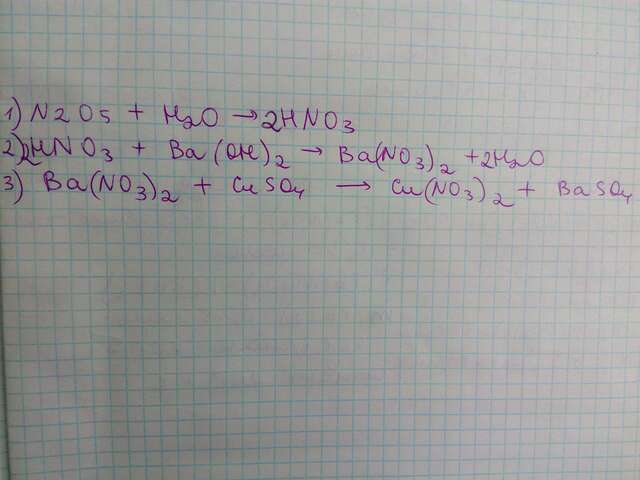 1) N2O5 + H2O → 2HNO3
2) 2HNO3 + Ba(OH)2 → Ba(NO3)2 + 2H2O
3) Ba(NO3)2 + CuSO4 → Cu(NO3)2 + BaSO4